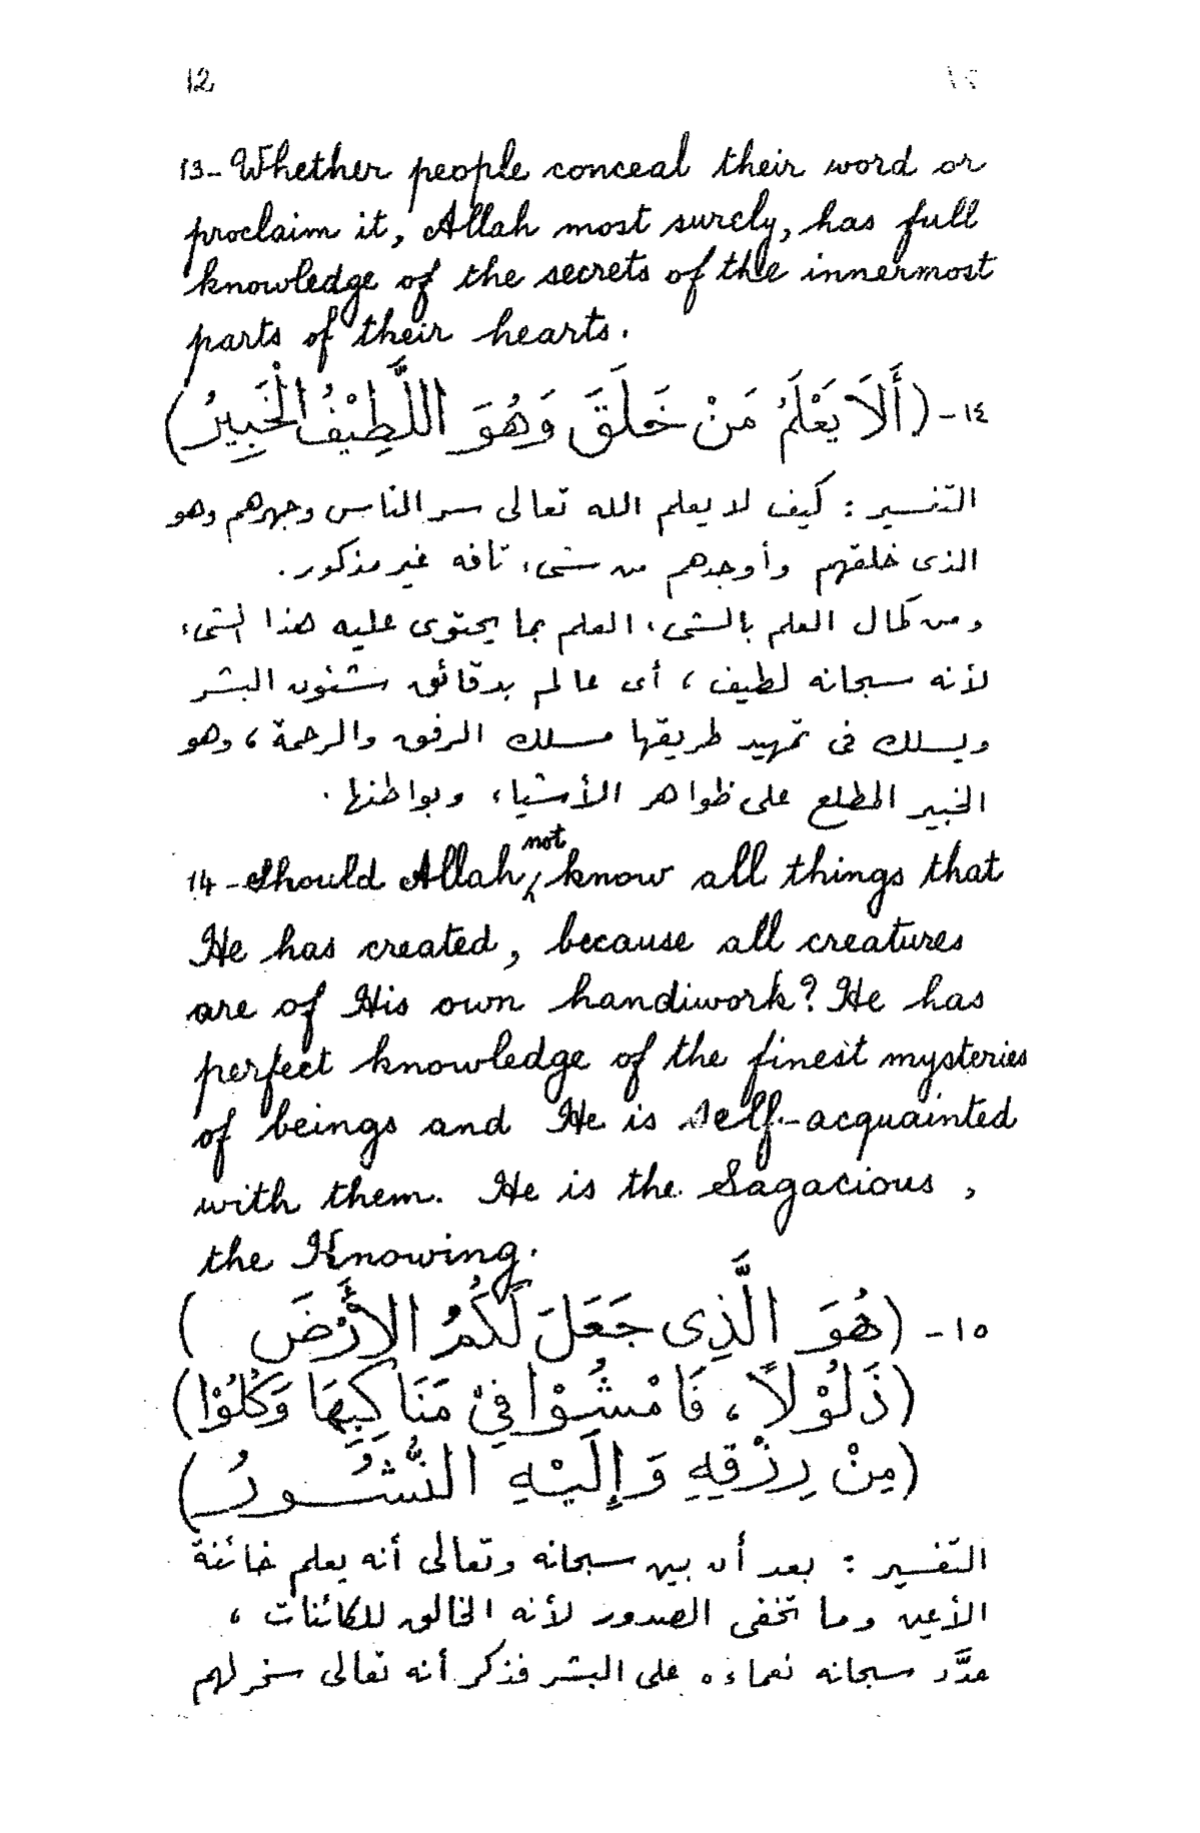 12 ١٢
13- Whether people conceal their word or
proclaim it, Allah most surely, has full
knowledge of the secrets of the innermost
parts of their hearts.
١٤- (أَلَا يَعْلَمُ مَنْ خَلَقَ وَهُوَ اللَّطِيْفُ الْخَبِيرُ)
التفسير : كيف لا يعلم الله تعالى سر الناس وجهرهم وهو
الذى خلقهم وأوجدهم من شىء تافه غير مذكور.
ومن كمال العلم بالشىء، العلم بما يحتوى عليه هذا الشىء
لأنه سبحانه لطيف، أى عالم بدقائق شئون البشر
ويسلك فى تمهيد طريقها مسلك الرفق والرحمة، وهو
الخبير المطلع على ظواهر الأشياء وبواطنها.
14- Should Allah, not know all things that
He has created, because all creatures
are of His own handiwork? He has
perfect knowledge of the finest mysteries
of beings and He is self-acquainted
with them. He is the Sagacious,
the Knowing.
١٥- (هُوَ الَّذِى جَعَلَ لَكُمُ الأَرْضَ )
(ذَلُوْلاً، فَامْشُوْا فِيْ مَنَاكِبِهَا وَكُلُوْا)
(مِنْ رِزْقِهِ وَإِلَيْهِ النُّشُورُ)
التفسير : بعد أن بين سبحانه وتعالى أنه يعلم خائنة
الأعين وما تخفى الصدور لأنه الخالق للكائنات،
عدَّد سبحانه نعماءه على البشر فذكر أنه تعالى سخر لهم